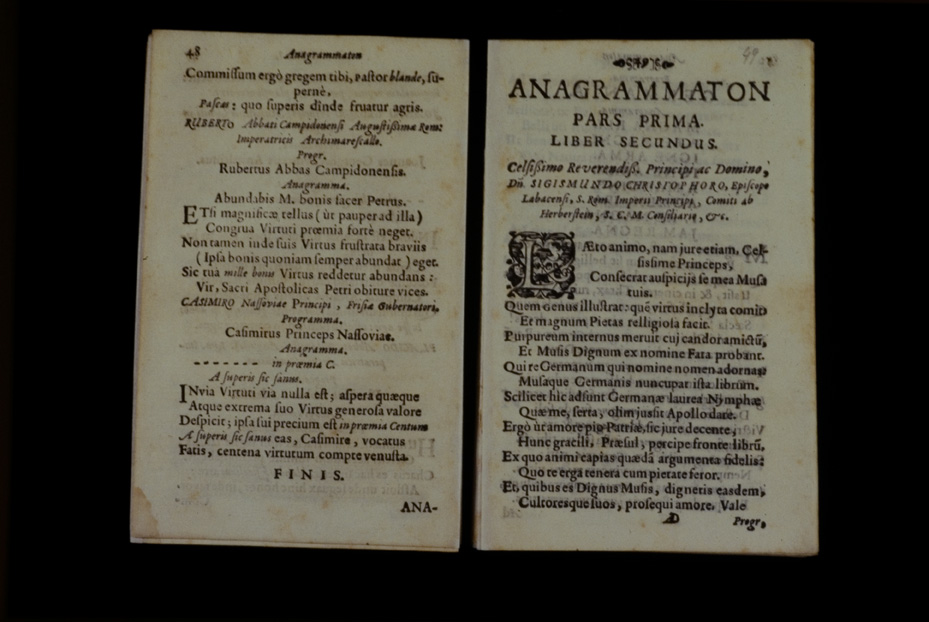 48
Anagrammaton
Commissum ergò gregem tibi, Pastor blande, su-
pernè,
Pascas: quo superis dînde fruatur agris.
RUBERTO Abbati Campidonensi Augustissimæ Rom:
Imperatricis Archimarescallo.
Progr.
Rubertus Abbas Campidonensis.
Anagramma.
Abundabis M. bonis sacer Petrus.
ETsi magnificæ tellus (ùt pauper ad illa)
Congrua Virtuti præmia fortè neget.
Non tamen inde suis Virtus frustrata braviis
(Ipsa bonis quoniam semper abundat) eget.
Sic tua mille bonis Virtus reddetur abundans:
Vir, Sacri Apostolicas Petri obiture vices.
CASIMIRO Nassoviae Principi, Frisiæ Gubernatori,
Programma.
Casimirus Princeps Nassoviae.
Anagramma.
- - - - - - - - in præmia C.
A superis sic sanus.
INvia Virtuti via nulla est; aspera quæque
Atque extrema suo Virtus generosa valore
Despicit; ipsa sui precium est in præmia Centum
A superis sic sanus eas, Casimire, vocatus
Fatis, centena virtutum compte venusta.
FINIS.
ANA-
49.
ANAGRAMMATON
PARS PRIMA.
LIBER SECUNDUS.
Celsissimo Reverendiss. Principi ac Domino,
Dn̄. SIGISMUNDO CHRISTOPHORO, Episcopo
Labacensi, S. Rom. Imperii Principi, Comiti ab
Herberstein, S. C. M. Consiliario, &c.
LÆto animo, nam jure etiam, Cel-
sissime Princeps,
Consecrat auspicijs se mea Musa
tuis.
Quem Genus illustrat: quē virtus inclyta comit
Et magnum Pietas relligiosa facit.
Purpureum internus meruit cuj candor amictū,
Et Musis Dignum ex nomine Fata probant.
Qui re Germanum qui nomine nomen adornas
Musaque Germanis nuncupat ista librum.
Scilicet hic adsunt Germanæ laurea Nymphæ
Quæ me, serta, olim jussit Apollo dare.
Ergò ut amore pio Patriæ, sic jure decente,
Hunc gracili, Præsul, percipe fronte librū.
Ex quo animi capias quædā argumenta fidelis:
Quo te ergà tenera cum pietate feror.
Et, quibus es Dignus Musis, digneris easdem,
Cultoresque suos, prosequi amore. Vale
D
Progr.